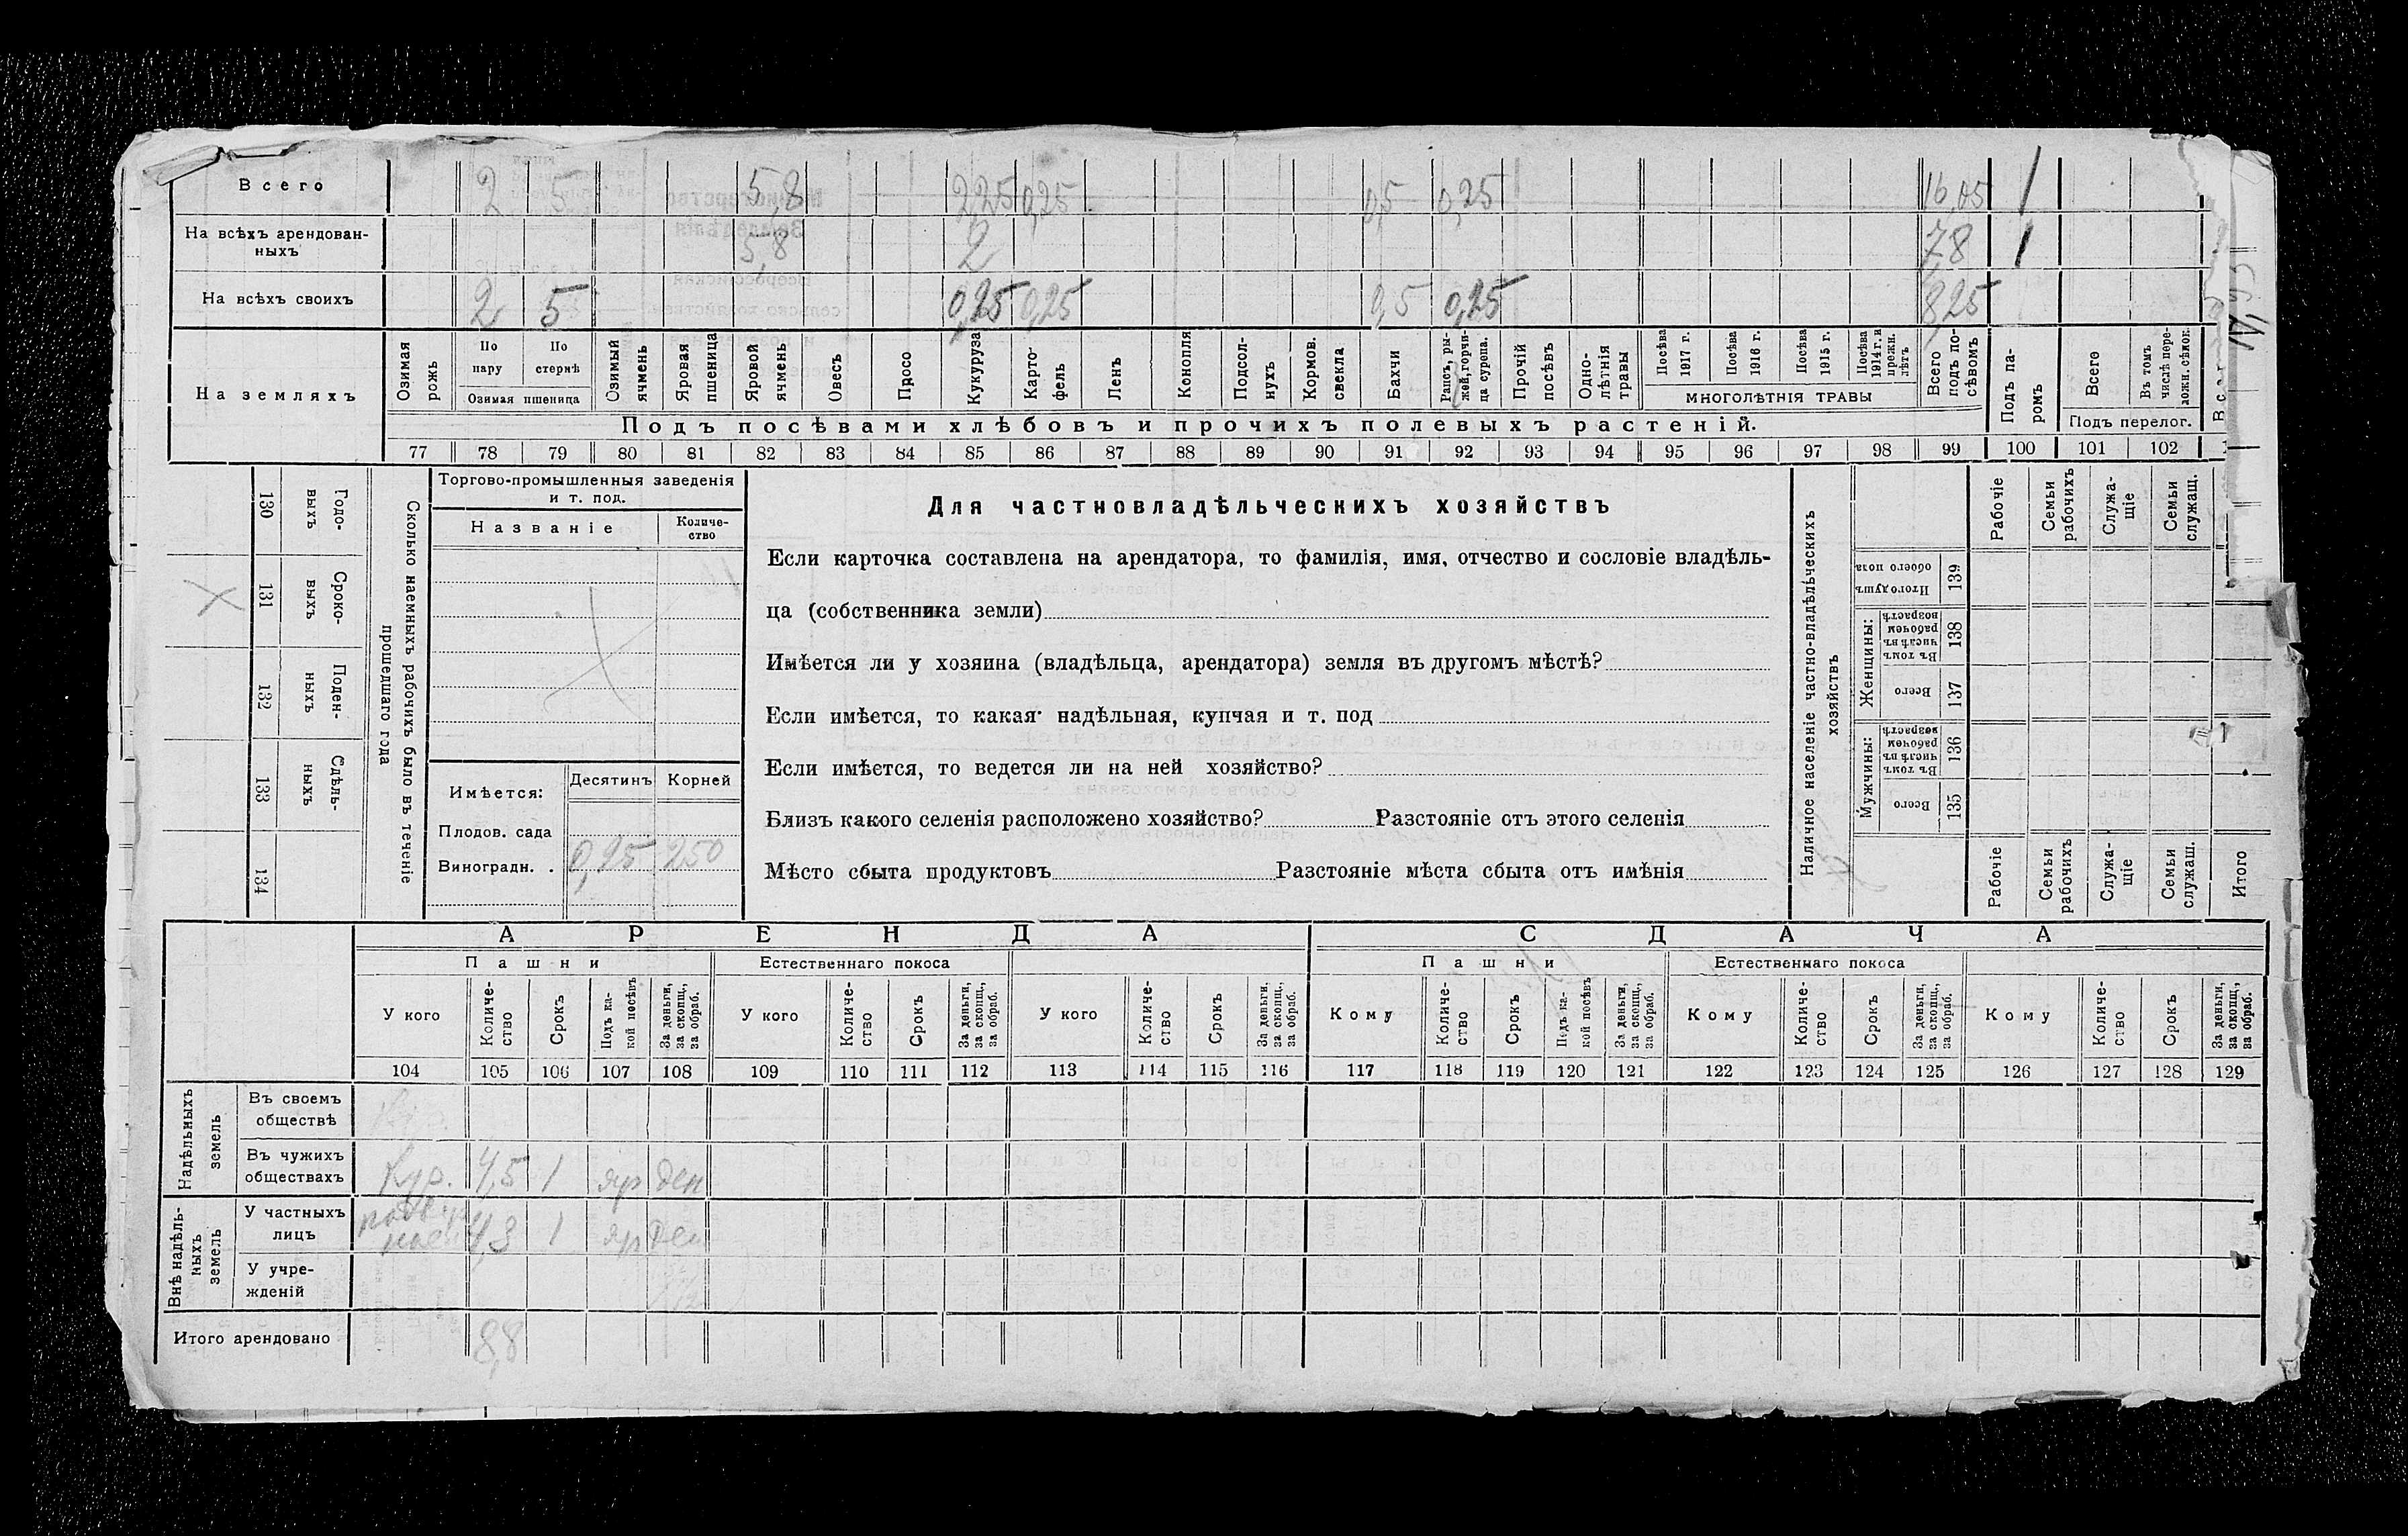 Всего 2 5 5,8 2,25 0,25 0,5 0,25 16,05 1
На всѣхъ арендован-
ныхъ 5,8 2 7,8 1
На всѣхъ своихъ 2 5 0,25 0,25 0,5 0,25 8,25
На земляхъ
Озимая рожь
По пару
По стернѣ
Озимая пшеница
Озимый ячмень
Яровая пшеница
Яровой ячмень
Овесъ
Просо
Кукуруза
Карто-
фель
Ленъ
Конопля
Подсол-
нухъ
Кормов. свекла
Бахчи
Рапсъ, ры-
жей, горчи-
ца сурепа.
Прочій посѣвъ
Одно-
лѣтнія травы
Посѣва 1917 г.
Посѣва 1916 г.
Посѣва 1915 г.
Посѣва 1914 г. и прежн. лѣтъ
МНОГОЛѢТНІЯ ТРАВЫ
Всего подъ по-
сѣвомъ
Подъ па-
ромъ
Всего
Въ томъ числѣ пере-
ложн. сѣнок.
Подъ перелог.
Подъ посѣвами хлѣбовъ и прочихъ полевыхъ растеній.
77 78 79 80 81 82 83 84 85 86 87 88 89 90 91 92 93 94 95 96 97 98 99 100 101 102
130 Годо-
выхъ
131 Сроко-
выхъ
132 Поден-
ныхъ
133 Сдѣль-
ныхъ
134
Сколько наемныхъ рабочихъ было въ теченіе
прошедшаго года
Торгово-промышленныя заведенія
и т. под.
Названіе
Количе-
ство
Имѣется:
Десятинъ Корней
Плодов. сада
Виноградн. . 0,25 250
Для частновладѣльческихъ хозяйствъ
Если карточка составлена на арендатора, то фамилія, имя, отчество и сословіе владѣль-
ца (собственника земли)
Имѣется ли у хозяина (владѣльца, арендатора) земля въ другомъ мѣстѣ?
Если имѣется, то какая: надѣльная, купчая и т. под
Если имѣется, то ведется ли на ней хозяйство?
Близъ какого селенія расположено хозяйство? Разстояніе отъ этого селенія
Мѣсто сбыта продуктовъ Разстояніе мѣста сбыта отъ имѣнія
Наличное населеніе частно-владѣльческихъ
хозяйствъ
Рабочіе
Семьи рабочихъ
Служа-
щіе
Семьи служащ.
Итого душъ обоего пола 139
Женщины:
Въ томъ числѣ въ рабочем возрастѣ 138
Всего 137
Мужчины:
Въ томъ числѣ въ рабочем возрастѣ 136
Всего 135
Рабочіе
Семьи рабочихъ
Служа-
щіе
Семьи служащ.
Итого
АРЕНДА СДАЧА
Пашни Естественнаго покоса Пашни Естественнаго покоса
У кого
Количе-
ство
Срокъ
Подъ ка-
кой посѣвъ
За деньги, за скопщ., за обраб.
У кого
Количе-
ство
Срокъ
За деньги, за скопщ., за обраб.
У кого
Количе-
ство
Срокъ
За деньги, за скопщ., за обраб.
Кому
Количе-
ство
Срокъ
Подъ ка-
кой посѣвъ
За деньги, за скопщ., за обраб.
Кому
Количе-
ство
Срокъ
За деньги, за скопщ., за обраб.
Кому
Количе-
ство
Срокъ
За деньги, за скопщ., за обраб.
104 105 106 107 108 109 110 111 112 113 114 115 116 117 118 119 120 121 122 123 124 125 126 127 128 129
Надѣльныхъ
земель
Въ своемъ
обществѣ
Въ чужихъ
обществахъ Кур. 4,5 1 яр ден
Внѣ надѣль-
ныхъ
земель
У частныхъ
лицъ 4,3 1 яр ден
У учре-
жденій
Итого арендовано 8,8